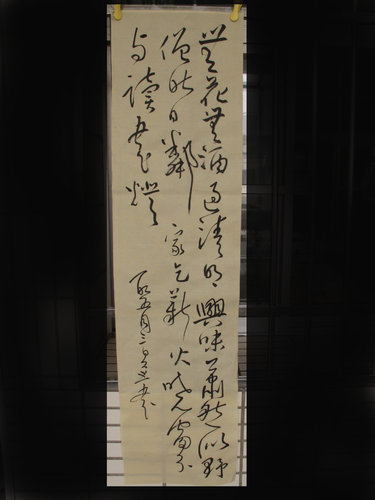 無花無酒過清明興味蕭然似野
僧昨日鄰家乞薪火曉窗分
与讀書燈
五月三日